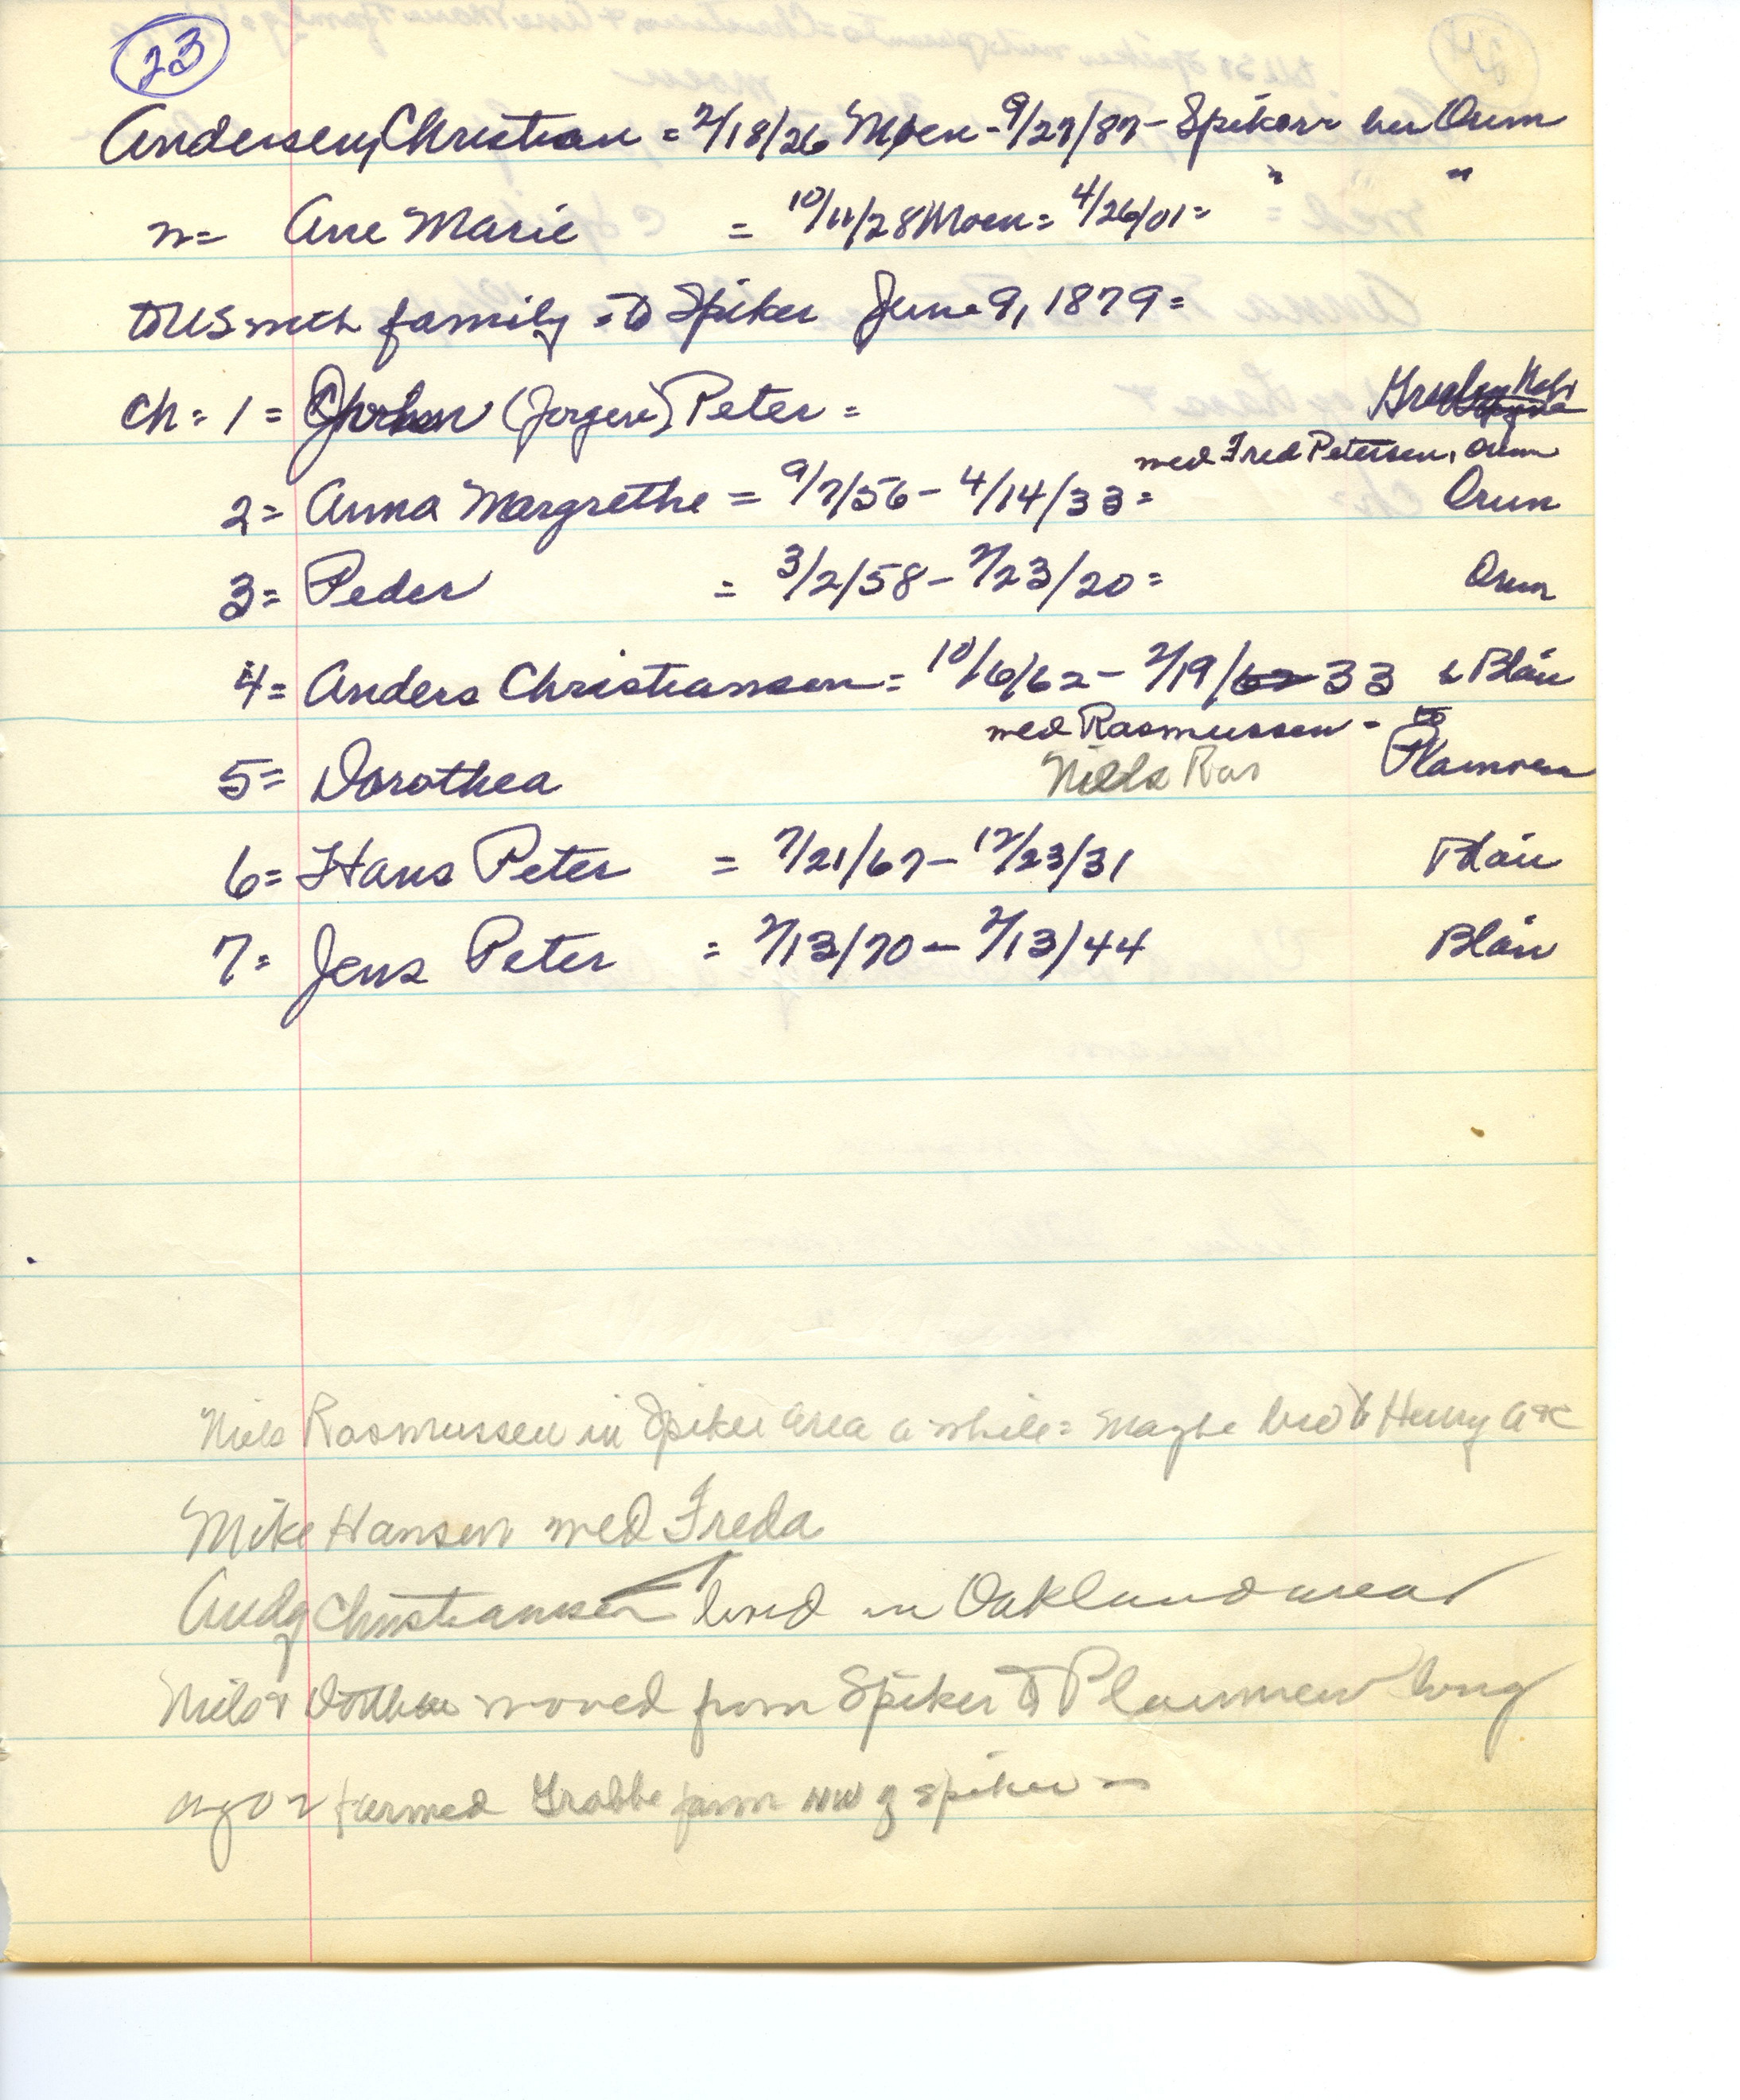 23
Andersen, Christian = 2/18/26 Møen - 9/27/87 - Spiker bur Orum
n = Ane Marie = 10/11/28 Moen = 4/26/01 = " "
to US with family = to Spiker June 9, 1879 =
Ch: 1 = (Jorgen) Peter =
med Fred Petersen, Orum
2 = Anna Margrethe = 9/7/56 - 4/14/33 = Orum
3 = Peder = 3/2/58 - 7/23/20 = Orum
4 = Anders Christiansen = 10/6/62 - 2/19/62 33 Blair
med Rasmussen - to
5 = Dorothea Niels Ras Plainview
6 = Hans Peter = 7/21/67 - 12/23/31 Blair
7 = Jens Peter = 2/13/70 - 2/13/44 Blair
Niels Rasmussen in Spiker area a while = Maybe bro to Henry
Mike Hansen med Freda
Andy Christiansen lived in Oakland area
Niels & moved from Spiker to Plainview long
ago farmed Grabbe farm NW of Spiker -